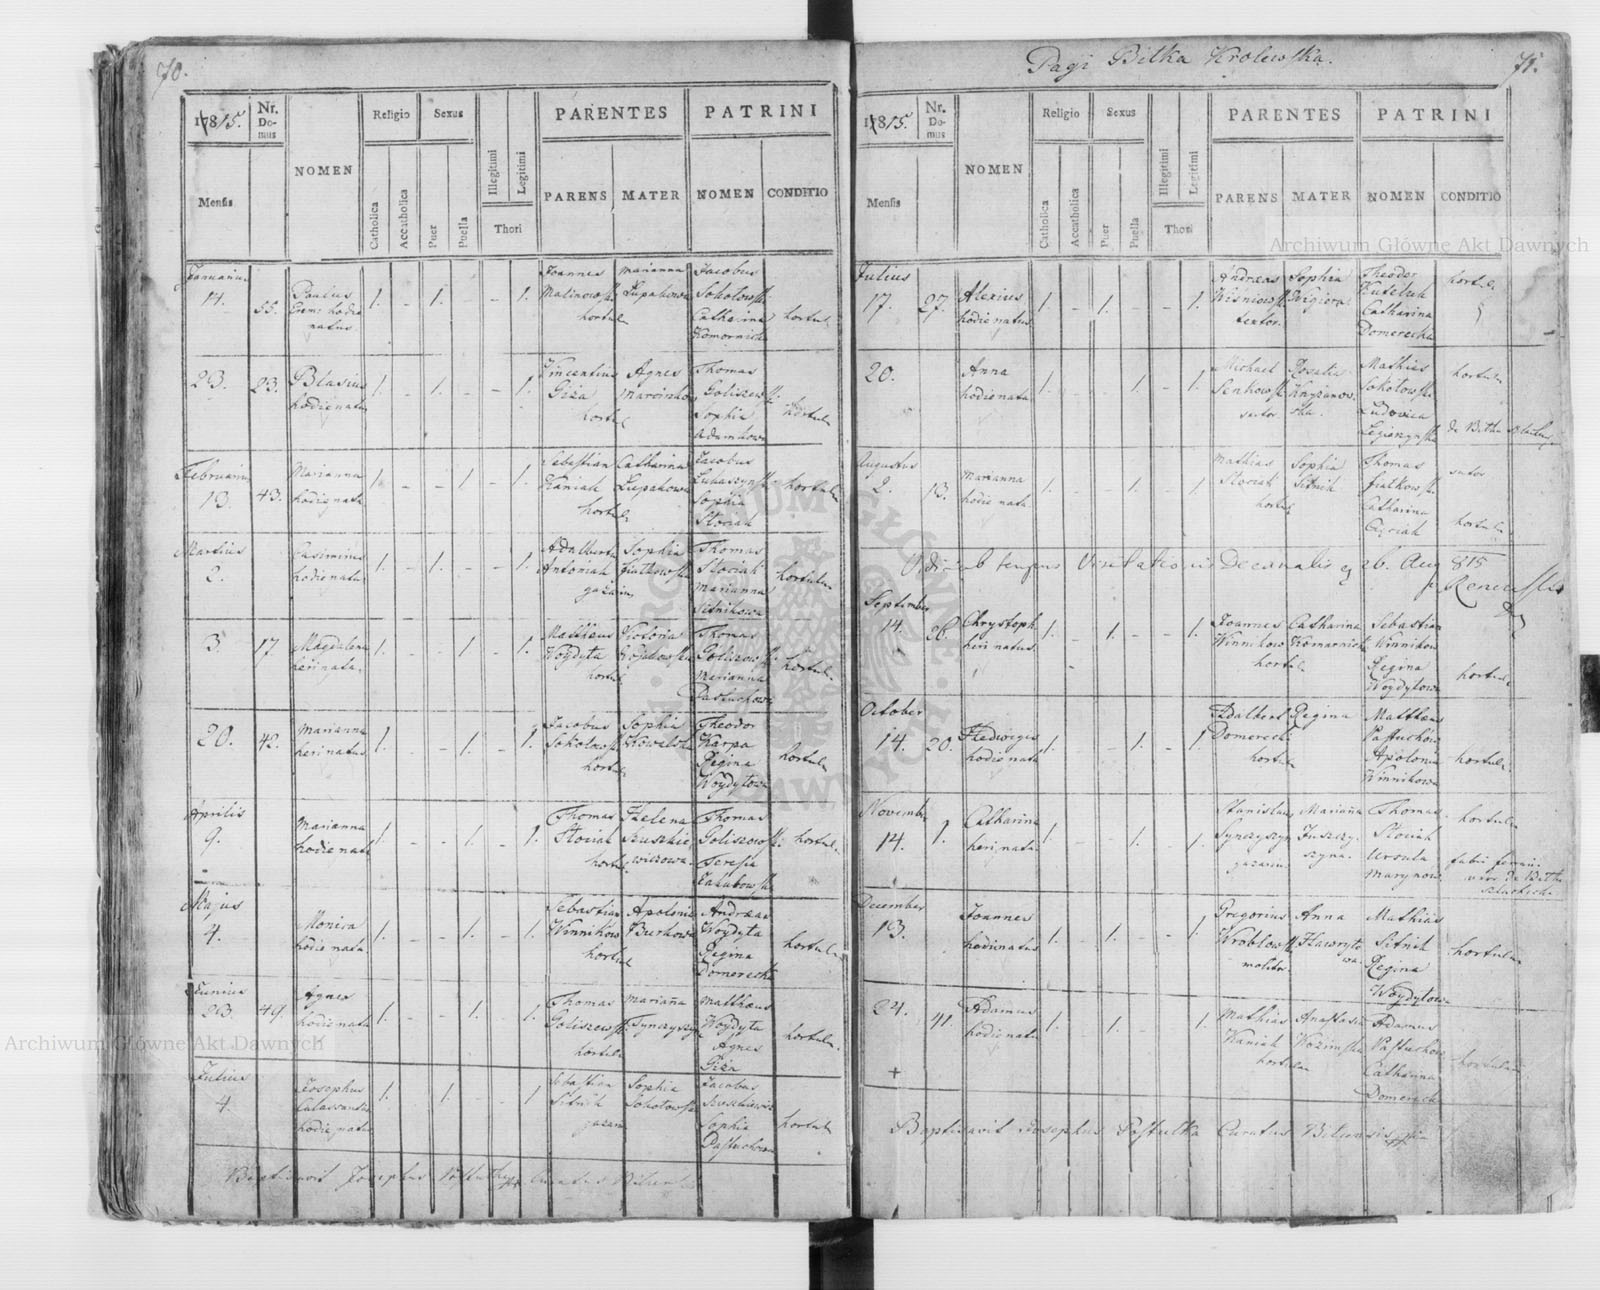 70.
1815.
Nr. Domus
NOMEN
Religio
Sexus
Illegitimi
Legitimi
PARENTES
PATRINI
Mensis
Catholica
Accatholica
Puer
Puella
Thori
PARENS
MATER
NOMEN
CONDITIO
Januarius
14.
55.
Paulus
hodie
natus
1. - 1. - - 1.
Joannes
Malinowsk
hortul
Marianna
Łupakowa
Jacobus
Sokołowsk
Catharina
Komornick
hortul
23.
23.
Blasius
hodie natus
1. - 1. - - 1.
Vincentius
Giża
hortul
Agnes
Marcinkow
Thomas
Goliszews
Sophia
Adamkowa
hortul
Februarius
13.
43.
Marianna
hodie nata
1. - - 1. - 1.
Sebastian
Kaniak
hortul
Catharina
Łupakowa
Jacobus
Lukaszyns
Sophia
Stociak
hortul
Martius
2.
Casimirus
hodie natus
1. - 1. - - 1.
Adalbert
Antoniak
gazarius
Sophia
Fiałkowska
Thomas
Stociak
Marianna
Sitnikowa
hortul
3.
17.
Magdalena
heri nata
1. - - 1. - 1.
Mattheus
Woydyta
hortul
Victoria
Thomas
Goliszows
Marianna
Pastuchowa
hortul
20.
42.
Marianna
heri nata
1. - - 1. - 1.
Jacobus
Sokołowsk
hortul
Sophia
Kowalska
Theodor
Karpa
Regina
Woydytowa
hortul
Aprilis
9.
Marianna
hodie nata
1. - - 1. - 1.
Thomas
Stociak
hortul
Helena
Szuszkie
wiczowa
Thomas
Goliszowsk
Teresia
Jakubowsk
hortul
Majus
4.
Monica
hodie nata
1. - - 1. - 1.
Sebastian
Winnikow
hortul
Apolonia
Burkowa
Andreas
Woydyta
Regina
Domerecka
hortul
Junius
23.
49.
Agnes
hodie nata
1. - - 1. - 1.
Thomas
Goliszewsk
hortul
Mariana
Synczyszyn
Matthæus
Woydyta
Agnes
Giża
hortul
Julius
4.
Josephus
Calassantius
hodie natus
1. - 1. - - 1.
Sebastian
Sitnik
gazar
Sophia
Sokołowsk
Jacobus
Szuszkiewicz
Sophia
Pastuchowa
hortul
Baptisavit Josephus Postulka Curatus
Pagi Bilka Krolewska.
71.
1815.
Nr. Domus
NOMEN
Religio
Sexus
Illegitimi
Legitimi
PARENTES
PATRINI
Mensis
Catholica
Accatholica
Puer
Puella
Thori
PARENS
MATER
NOMEN
CONDITIO
Julius
17.
27.
Alexius
hodie natus
1. - 1. - - 1.
Andreas
Wiśniowsk
textor
Sophia
Theodor
Kuteluk
Catharina
Domerecka
hortul
20.
Anna
hodie nata
1. - - 1. - 1.
Michael
Senkowsk
sutor
Rosalia
Knyżanow
ska
Mathias
Sokołowsk
Ludovica
hortul
de Bilka
Augustus
2.
13.
Marianna
hodie nata
1. - - 1. - 1.
Mathias
Stociak
hortul
Sophia
Sitnik
Thomas
Fiałkowsk
Catharina
sutor
hortul
Vidi sub tempus Visitationis Decanalis 26. Aug 815
September
14.
26.
Chrystoph
heri natus
1. - 1. - - 1.
Joannes
Winnikow
hortul
Catharina
Komarnick
Sebastian
Winnikow
Regina
Woydytowa
hortul
October
14.
20.
Hedwigis
hodie nata
1. - - 1. - 1.
Adalbert
Domerecki
hortul
Regina
Matthæus
Pastuchow
Apolonia
Winnikowa
hortul
November
14.
1.
Catharina
heri nata
1. - - 1. - 1.
Stanislaus
Synczyszyn
gazarius
Mariana
Juszczy
szyna
Thomas
Stociak
Ursula
Marynow
hortul
fabri ferrari
December
13.
Joannes
hodie natus
1. - 1. - - 1.
Gregorius
Wroblowsk
molitor
Anna
Hawryto
wa
Mathias
Sitnik
Regina
Woydytowa
hortul
24.
41.
Adamus
hodie natus
1. - 1. - - 1.
Mathias
Kaniak
hortul
Anastasia
Adamus
Pastuchow
Catharina
Domereck
hortulan
+
Baptisavit Josephus Postulka Curatus
Archiwum Główne Akt Dawnych
Archiwum Główne Akt Dawnych
ARCHIWUM GŁÓWNE AKT DAWNYCH